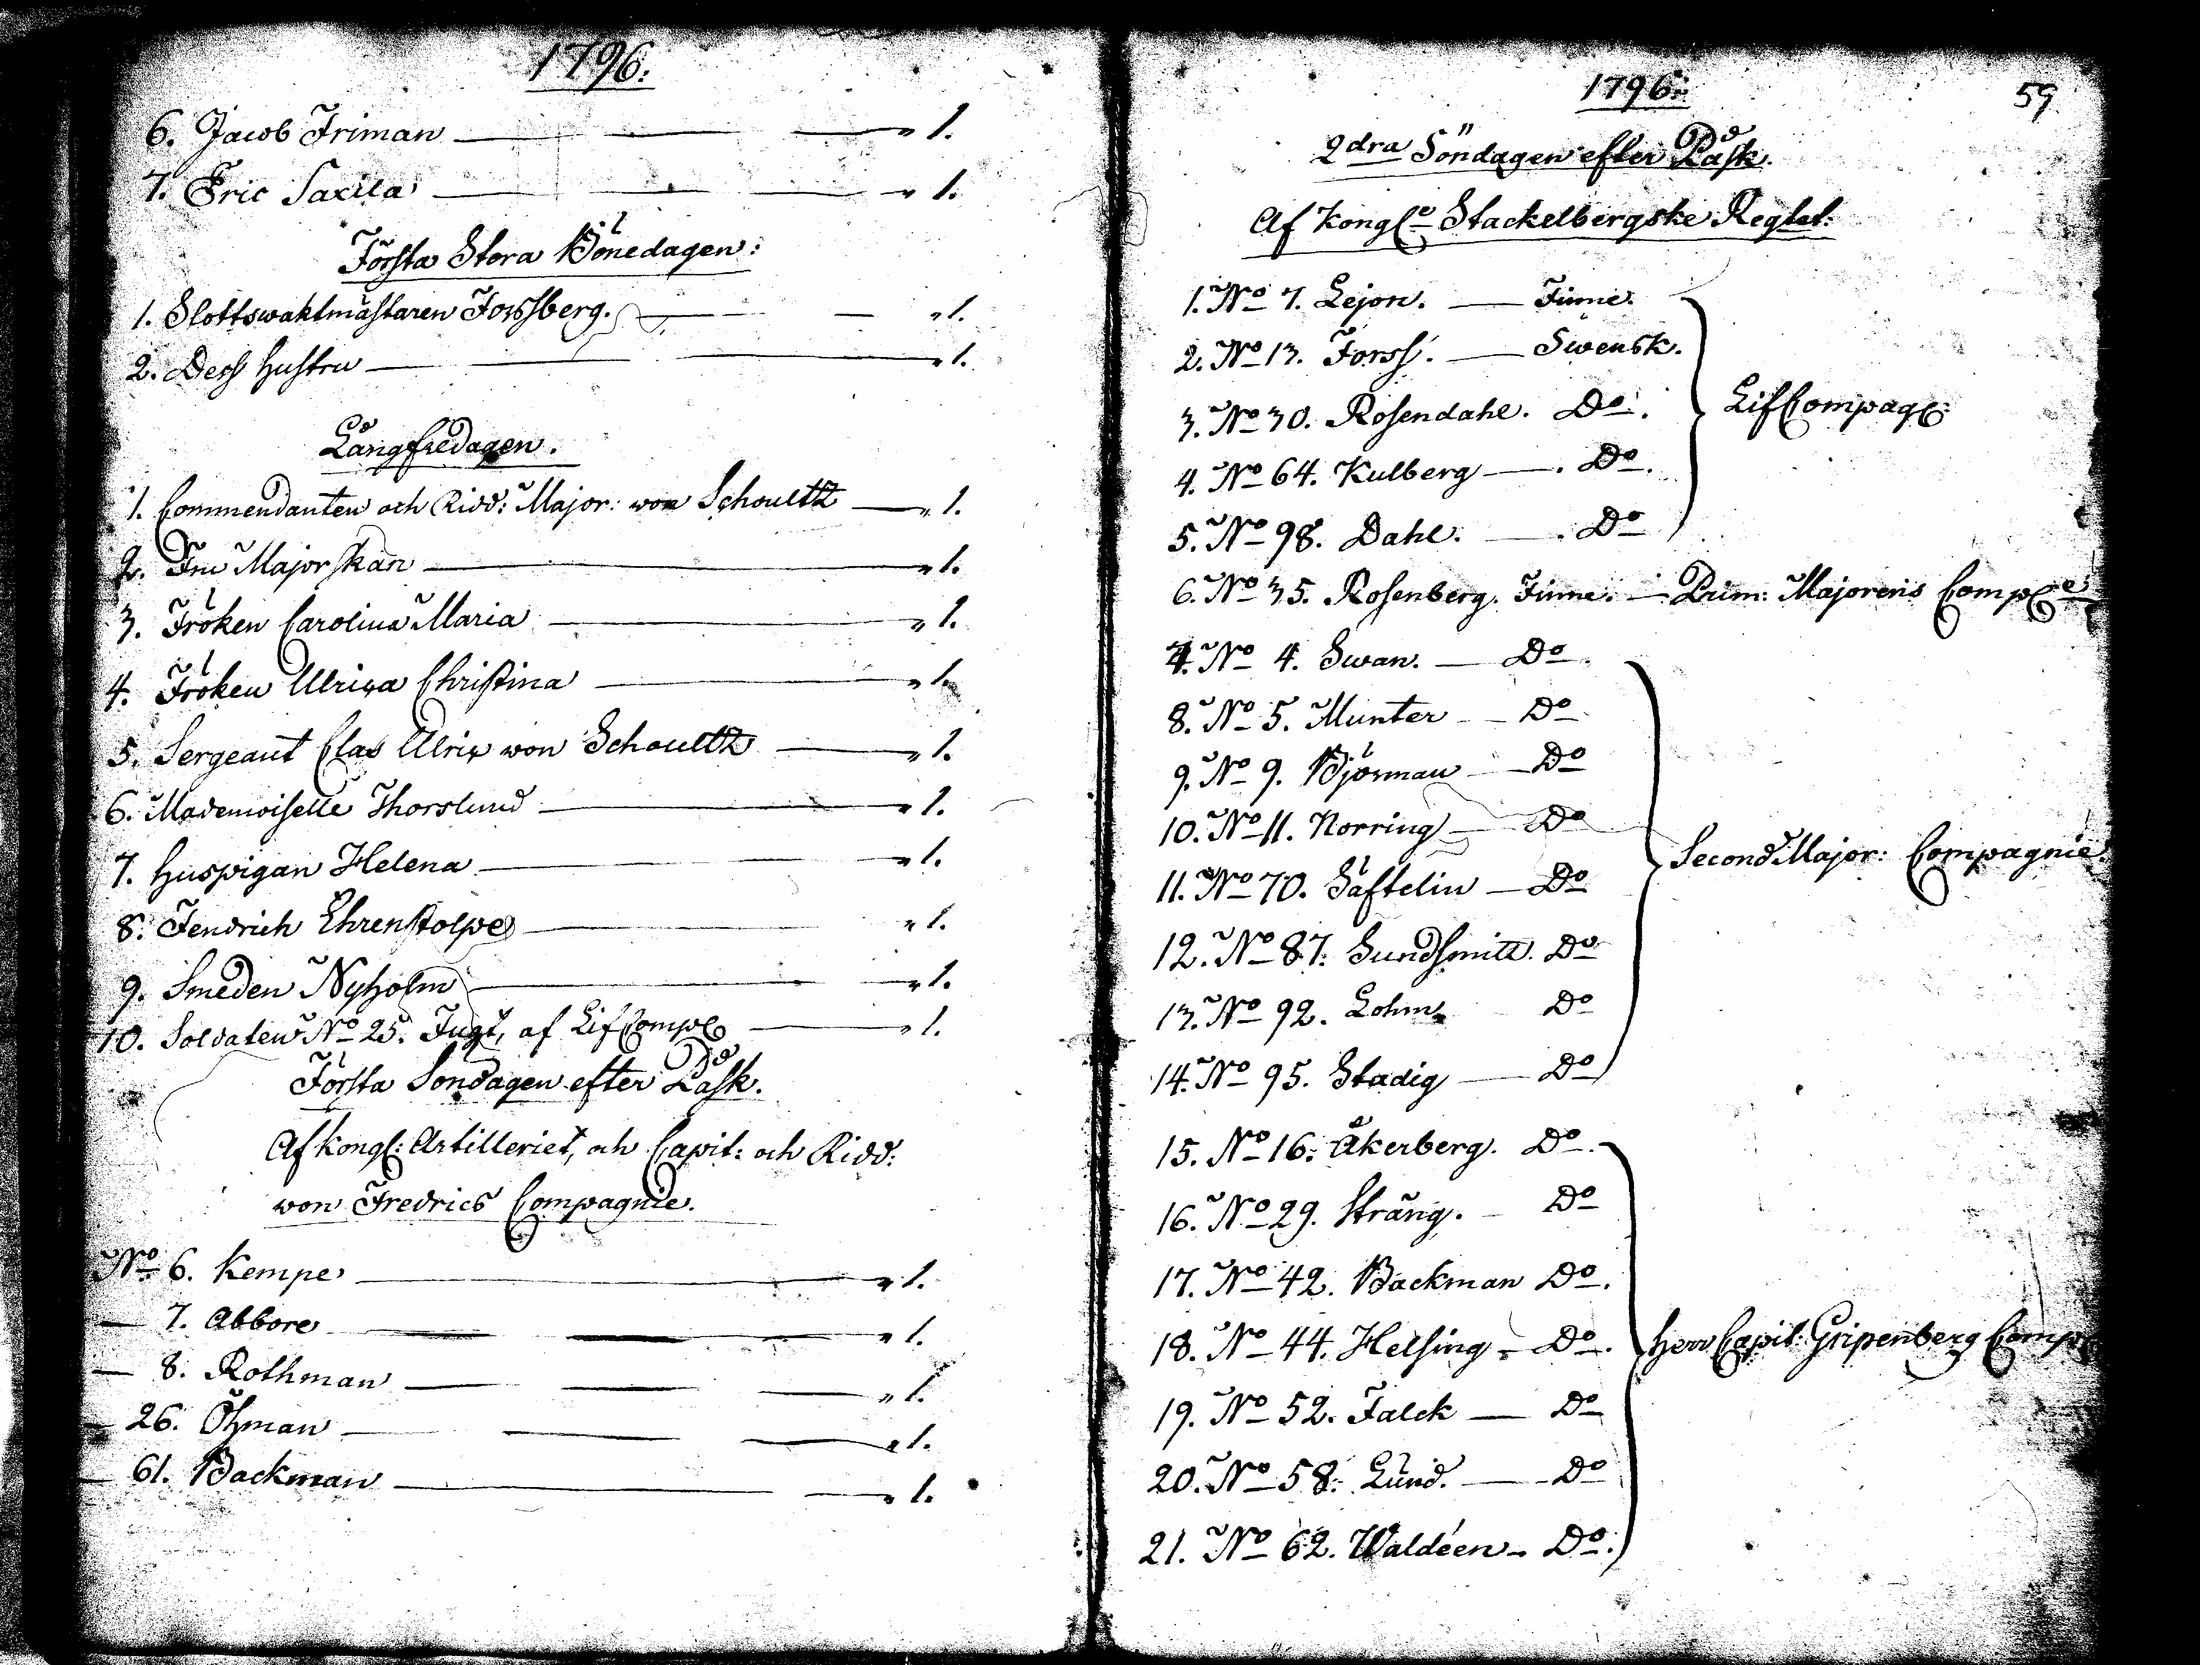 1796.
6. Jacob Friman — " 1.
7. Eric Saxila — " 1.
Första Stora Bönedagen:
1. Slottswaktmästaren Forssberg. — " 1.
2. Dess hustru — " 1.
Långfredagen.
1. Commendanten och Ridd: Major: von Schoultz — " 1.
2. Fru Majorskan — " 1.
3. Fröken Carolina Maria — " 1.
4. Fröken Ulrica Christina — " 1.
5. Sergeant Clas Ulric von Schoultz — " 1.
6. Mademoiselle Thorslund — " 1.
7. Huspigan Helena — " 1.
8. Fendrich Ehrenstolpe — " 1.
9. Smeden Nyholm — " 1.
10. Soldaten No 25. Fugt, af Lif Comp — " 1.
Första Söndagen efter Påsk.
Af Kongl: Artilleriet, och Capit: och Ridd:
von Fredrics Compagnie.
No 6. Kempe — " 1.
— 7. Abbore — " 1.
— 8. Rothman — " 1.
— 26. Öhman — " 1.
— 61. Backman — " 1.
1796.
59
2dra Söndagen efter Påsk.
Af Kongle Stackelbergske Regtet:
1. No 7. Lejon. — Finne.
2. No 13. Forss. — Swensk.
3. No 30. Rosendahl. Do.
Lif Compage
4. No 64. Kulberg — Do.
5. No 98. Dahl. — Do
6. No 35. Rosenberg. Finne. — Prim: Majorens Compe
7. No 4. Swan. — Do.
8. No 5. Munter — Do
9. No 9. Björnman — Do
10. No 11. Norring — Do
Second Major: Compagnie.
11. No 70. Säftelin — Do
12. No 87. Sundsmitt. Do
13. No 92. Lohm. Do
14. No 95. Stadig — Do
15. No 16. Åkerberg. Do.
16. No 29. Sträng. — Do
17. No 42. Backman Do.
18. No 44. Helsing — Do. Herr Capit: Gripenberg Comp
19. No 52. Falck — Do
20. No 58. Lund. — Do
21. No 62. Waldéen — Do.